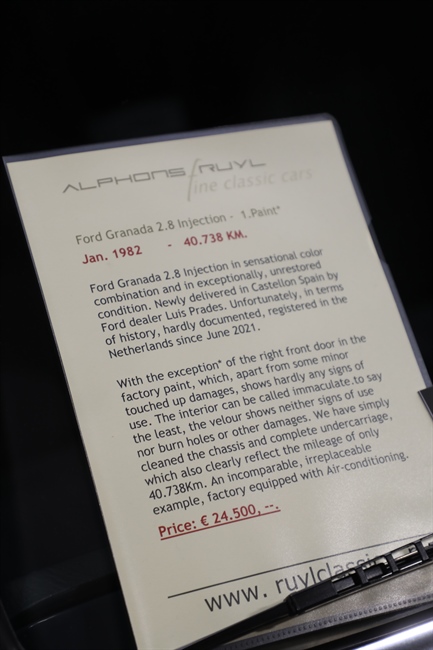 ALPHONS RUYL
fine classic cars
Ford Granada 2.8 Injection - 1.Paint*
Jan. 1982 - 40.738 KM.
Ford Granada 2.8 Injection in sensational color
combination and in exceptionally, unrestored
condition. Newly delivered in Castellon Spain by
Ford dealer Luis Prades. Unfortunately, in terms
of history, hardly documented, registered in the
Netherlands since June 2021.
With the exception* of the right front door in the
factory paint, which, apart from some minor
touched up damages, shows hardly any signs of
use. The interior can be called immaculate.to say
the least, the velour shows neither signs of use
nor burn holes or other damages. We have simply
cleaned the chassis and complete undercarriage,
which also clearly reflect the mileage of only
40.738Km. An incomparable, irreplaceable
example, factory equipped with Air-conditioning.
Price: € 24.500, --.
www. ruylclassi